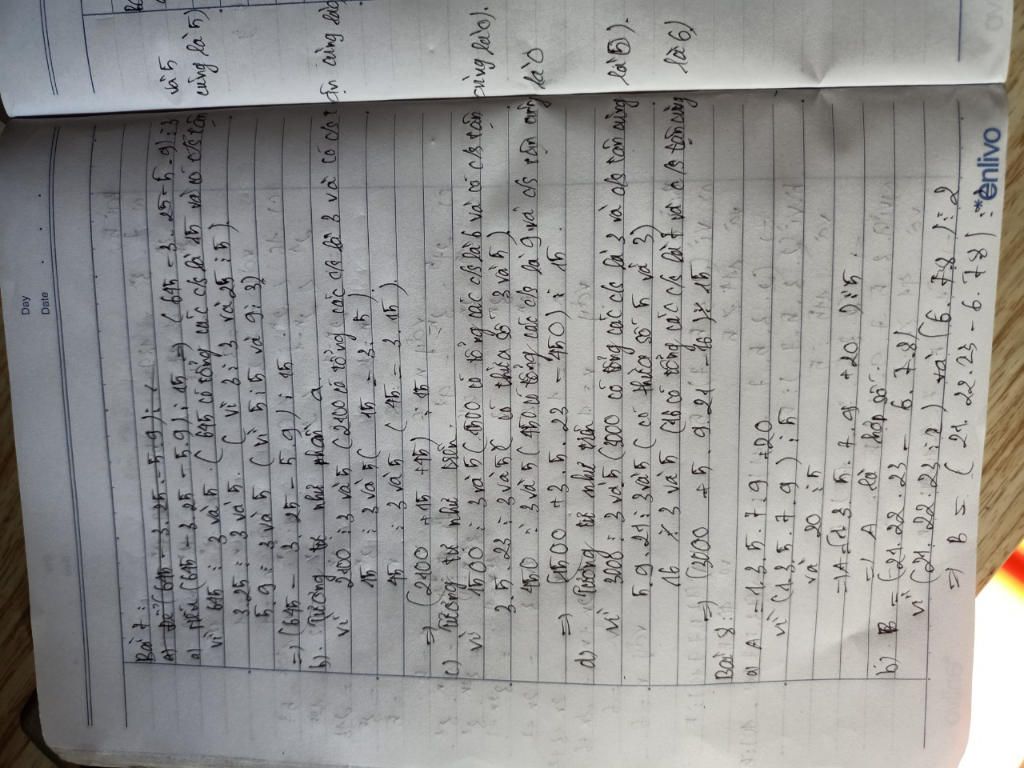 Day
Date
Bài 7:
a)
nếu (615 - 3.25 - 5.9) ⋮ 15 => (615 - 3.25 - 5.9) ⋮ 3 và 5
vì 615 ⋮ 3 và 5. (615 có tổng các cs là 15 và có cs tận cùng là 5)
3.25 ⋮ 3 và 5. (vì 3 ⋮ 3 và 25 ⋮ 5)
5.9 ⋮ 3 và 5 (vì 5 ⋮ 5 và 9 ⋮ 3)
=> (615 - 3.25 - 5.9) ⋮ 15
b) Tương tự như phần a
vì 2100 ⋮ 3 và 5 (2100 có tổng các cs là 3 và có cs tận cùng
15 ⋮ 3 và 5 (15 = 3.5)
45 ⋮ 3 và 5 (45 = 3.15)
=> (2100 + 15 + 45) ⋮ 15
c) Tương tự như trên
vì 1500 ⋮ 3 và 5 (1500 có tổng các cs là 6 và có cs tận cùng là 0).
3.5.23 ⋮ 3 và 5 (có thừa số 3 và 5)
450 ⋮ 3 và 5 (450 có tổng các cs là 9 và cs tận cùng là 0
=> (1500 + 3.5.23 - 450) ⋮ 15.
d) Tương tự như trên
vì 3000 ⋮ 3 và 5 (3000 có tổng các cs là 3 và cs tận cùng là 5).
5.9.21 ⋮ 3 và 5 (có thừa số 5 và 3)
16 ⋮̸ 3 và 5 (16 có tổng các cs là 7 và cs tận cùng là 6)
=> (3000 + 5.9.21 - 16) ⋮̸ 15
Bài 8:
a) A = 11.3.5.7.9 + 20
vì (11.3.5.7.9) ⋮ 5
và 20 ⋮ 5
=> A = 11.3.5.7.9 + 20 ⋮ 5.
=> A là hợp số.
b) B = (21.22.23 - 6.7.8)
vì (21.22.23 ⋮ 2) và (6.7.8) ⋮ 2
=> B = (21.22.23 - 6.7.8) ⋮ 2
enlivo